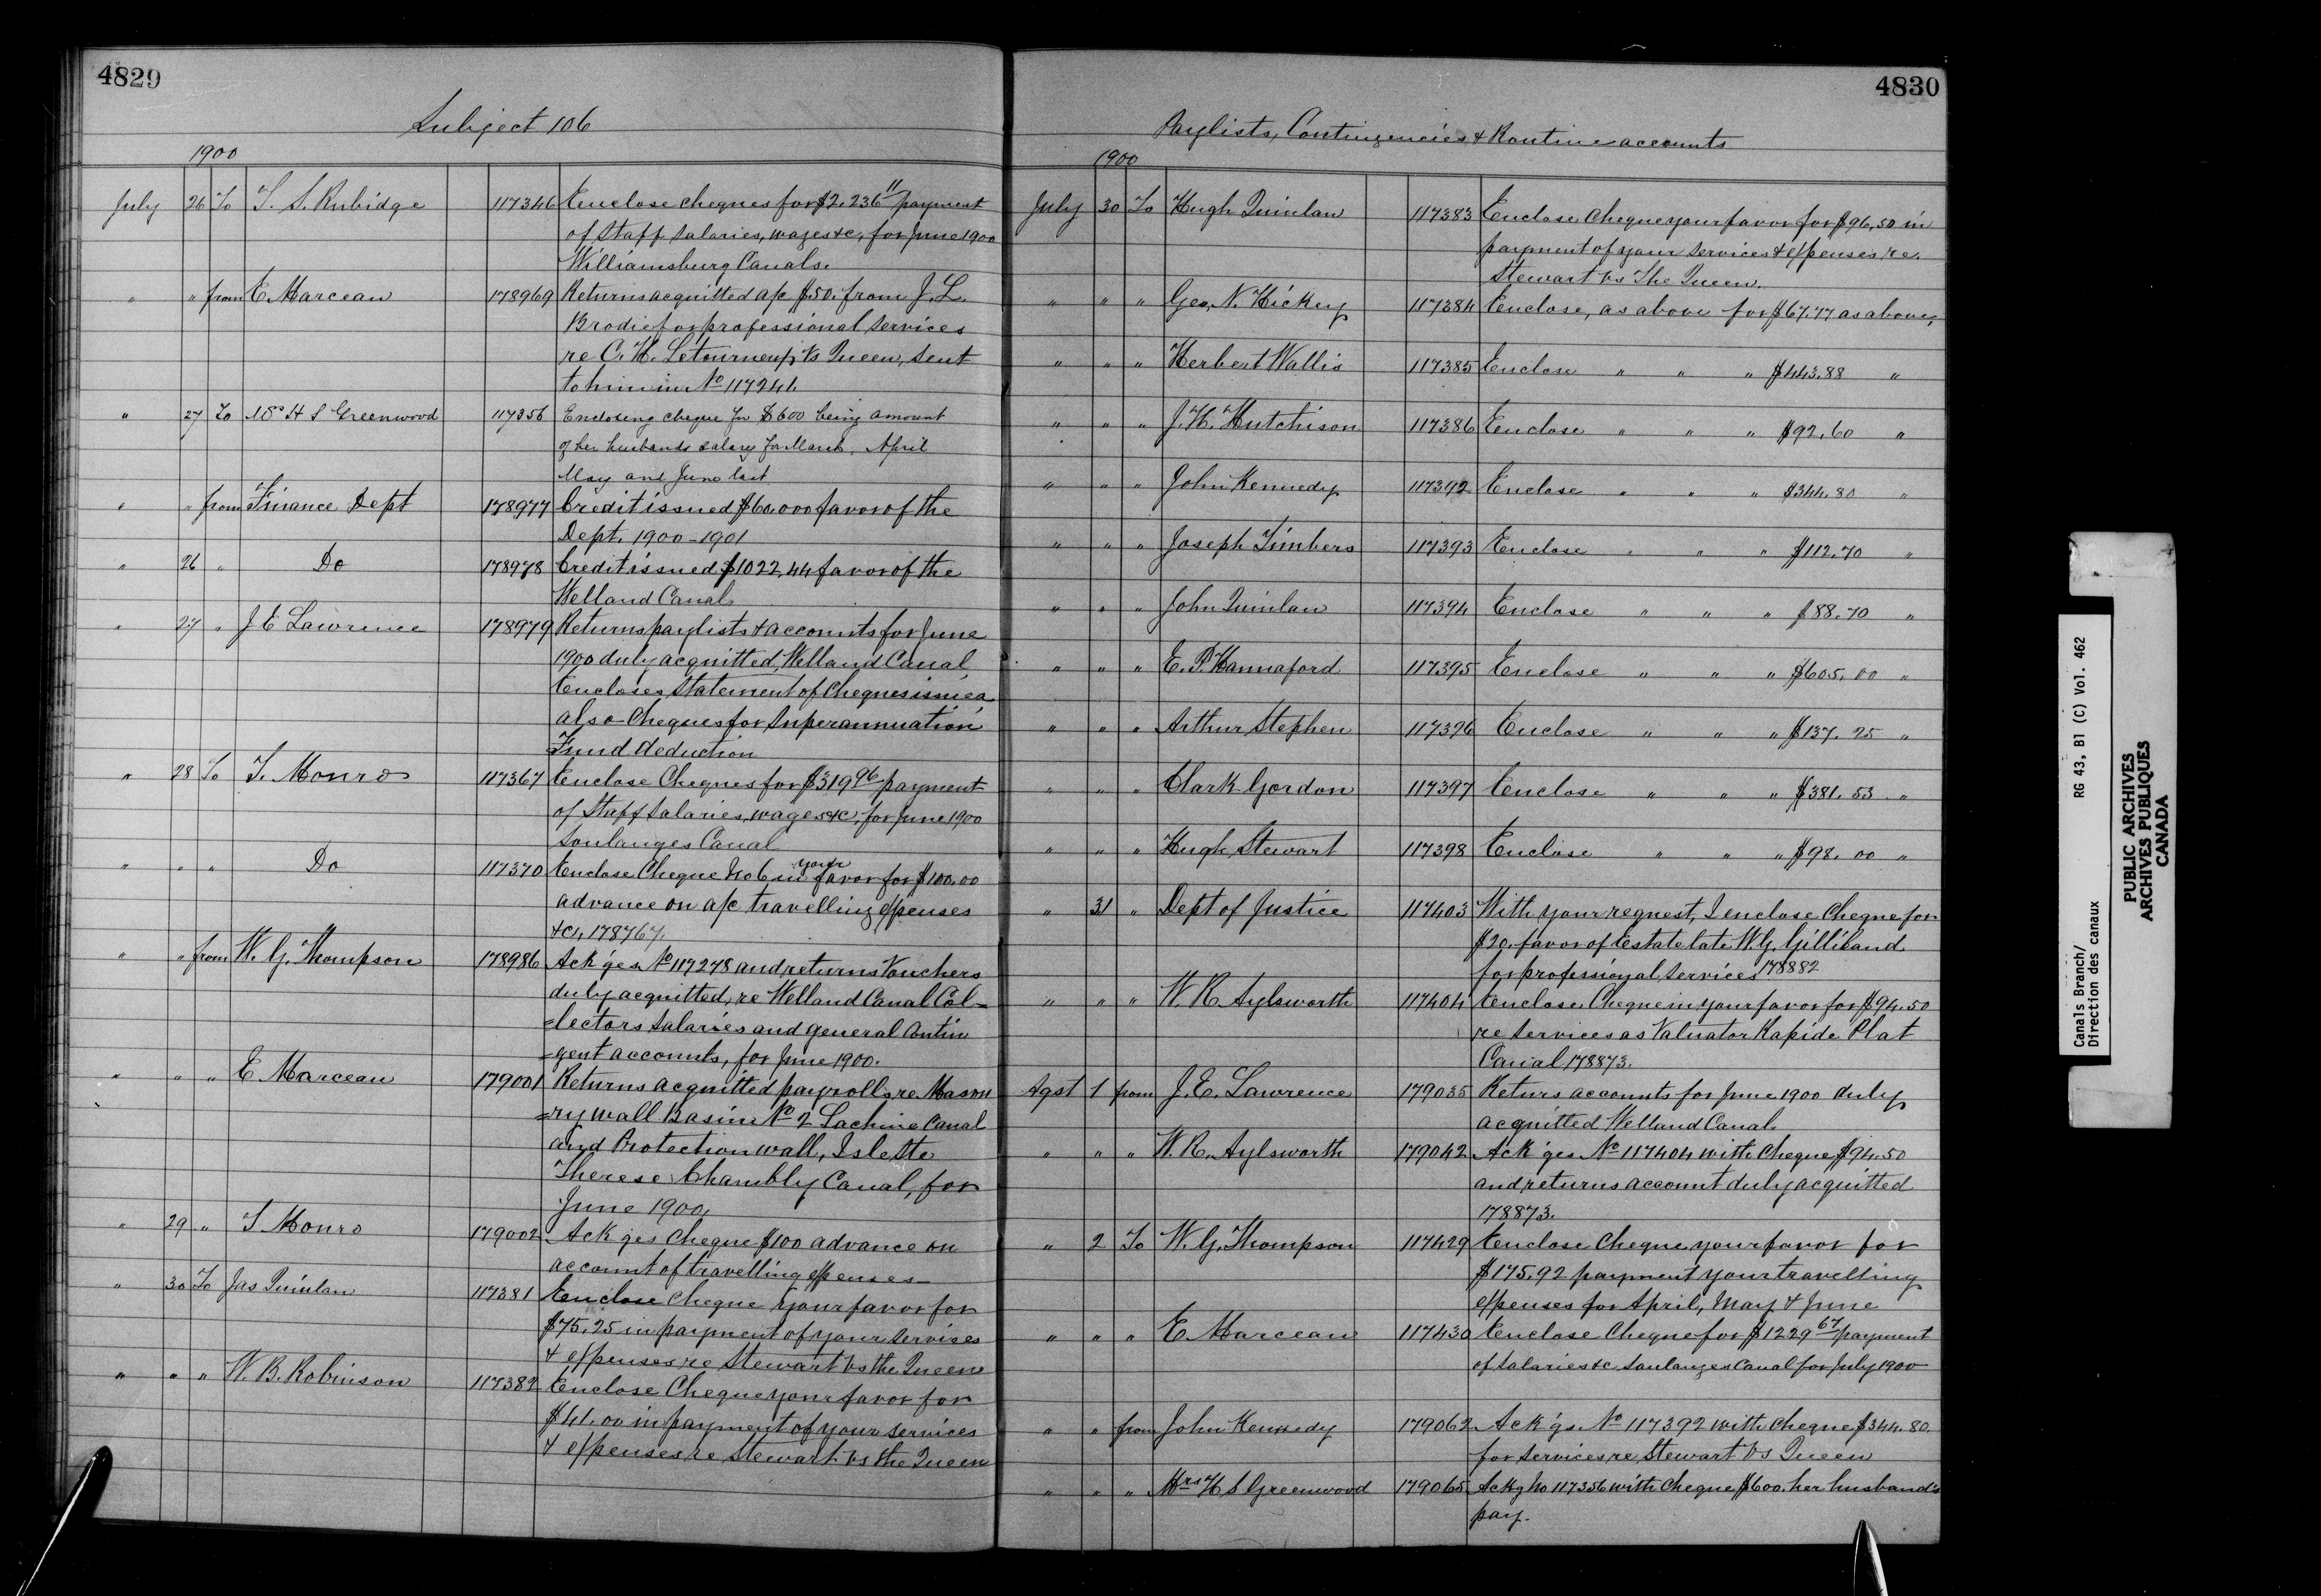 4829
Subject 106
1900
July 26 To T. S. Rubidge 117346 Enclose cheques for $2,236 11 payment
of Staff salaries, wages &c, for June 1900
Williamsburg Canals.
" " from E. Marceau 178969 Returns acquitted a/c $50. from J. L.
Brodie for professional services
re C. H. Letourneux vs Queen, sent
to him in No 117241
" 27 To Mrs H S Greenwood 117356 Enclosing cheque for $600 being amount
of her husbands salary for March, April
May and June last
" " from Finance Dept 178977 Credit issued $60,000 favor of the
Dept. 1900-1901
" 26 " Do 178978 Credit issued $1022,44 favor of the
Welland Canal
" 27 " J E Lawrence 178979 Returns paylists & accounts for June
1900 duly acquitted, Welland Canal,
Encloses Statement of Cheques issued
also Cheques for Superannuation
Fund deduction
" 28 To T. Monro 117367 Enclose Cheques for $319 96 payment
of Staff salaries, wages &c, for June 1900
Soulanges Canal
" " " Do 117370 Enclose Cheque No 6 in your favor for $100.00
advance on a/c travelling expenses
&c, 178767.
" " from W. G. Thompson 178986 Ack'ges No 117278 and returns Vouchers
duly acquitted, re Welland Canal Col=
=lectors salaries and general Contin
=gent accounts, for June 1900.
" " " E Marceau 179001 Returns acquitted payrolls re Mason
=ry wall Basin No 2 Lachine Canal
and Protection wall, Isle Ste
Therese Chambly Canal, for
June 1900,
" 29 " T Monro 179002 Ack ges Cheque $100 advance on
account of travelling expenses
" 30 To Jas Quinlan 117381 Enclose Cheque your favor for
$75.25 in payment of your services
& expenses re Stewart vs the Queen
" " " W. B. Robinson 117382 Enclose Cheque your favor for
$41.00 in payment of your services
& expenses re Stewart vs the Queen
4830
Paylists, Contingencies & Routine accounts
1900
July 30 To Hugh Quinlan 117383 Enclose Cheque your favor for $96,50 in
payment of your services & expenses re.
Stewart vs The Queen.
" " " Geo, N. Hickey 117384 Enclose, as above for $67.77 as above,
" " " Herbert Wallis 117385 Enclose " " " $443.88 "
" " " J. H. Hutchison 117386 Enclose " " " $92.60 "
" " " John Kennedy 117392 Enclose " " " $344.80 "
" " " Joseph Timbers 117393 Enclose " " " $112.70 "
" " " John Quinlan 117394 Enclose " " " $88.70 "
" " " E. P. Hannaford 117395 Enclose " " " $605.00 "
" " " Arthur Stephen 117396 Enclose " " " $137.25 "
" " " Clark Gordon 117397 Enclose " " " $381.53 "
" " " Hugh Stewart 117398 Enclose " " " $98.00 "
" 31 " Dept of Justice 117403 With your request, I enclose Cheque for
$20. favor of Estate late W. G. Gilliland
for professional services 178882
" " " W. R. Aylsworth 117404 Enclose Cheque in your favor for $94.50
re services as Valuator Rapide Plat
Canal 178873.
Agst 1 from J. E. Lawrence 179035 Returs accounts for June 1900 duly
acquitted Welland Canal.
" " " W. R. Aylsworth 179042 Ack'ges No 117404 with cheque $94.50
and returns account duly acquitted
178873.
" 2 To W. G. Thompson 117429 Enclose Cheque your favor for
$175.92 payment your travelling
expenses for April, May & June
" " " E. Marceau 117430 Enclose Cheque for $1229 67 payment
of salaries &c Soulanges Canal for July 1900
" " from John Kennedy 179062 Ack'gs No 117392 with cheque $344.80.
for services re Stewart vs Queen
" " " Mrs H S Greenwood 179065 Ackg No 117356 with Cheque $600. her husband's
pay.
Canals Branch/ RG 43, B1 (C) Vol. 462
Direction des canaux
PUBLIC ARCHIVES
ARCHIVES PUBLIQUES
CANADA